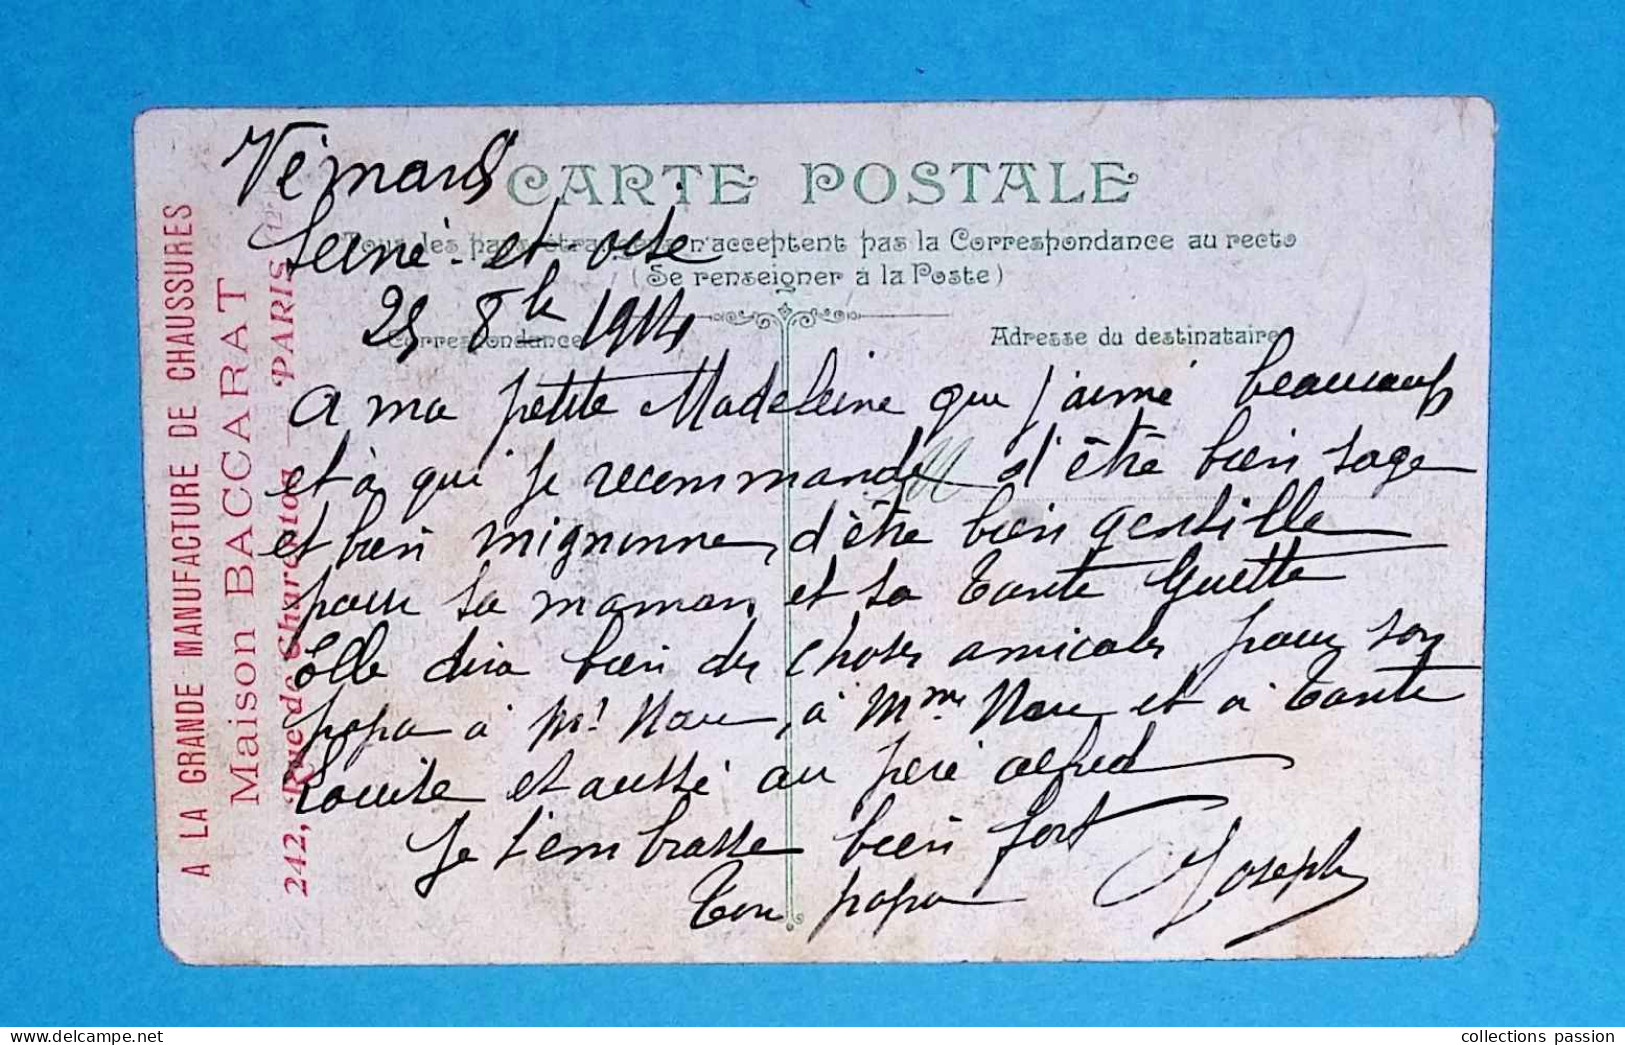 Vémars
Seine-et-Oise
25 8bre 1914
CARTE POSTALE
Tous les pays étrangers n'acceptent pas la Correspondance au recto
(Se renseigner à la Poste)
Correspondance
Adresse du destinataire
A ma petite Madeleine que j'aime beaucoup
et à qui je recommande d'être bien sage
et bien mignonne, d'être bien gentille
pour sa maman et sa tante Guette
Elle dira bien des choses amicales pour son
papa à Mr, à Mme et à tante
Louise et aussi au père Alfred
Je t'embrasse bien fort
Ton papa Joseph
A LA GRANDE MANUFACTURE DE CHAUSSURES
Maison BACCARAT
242, Rue de Charenton — PARIS
collections passion